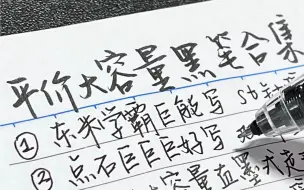 平价大容量黑笔合集
① 东米学霸巨能写
③ 点石巨巨巨好写
大容量直